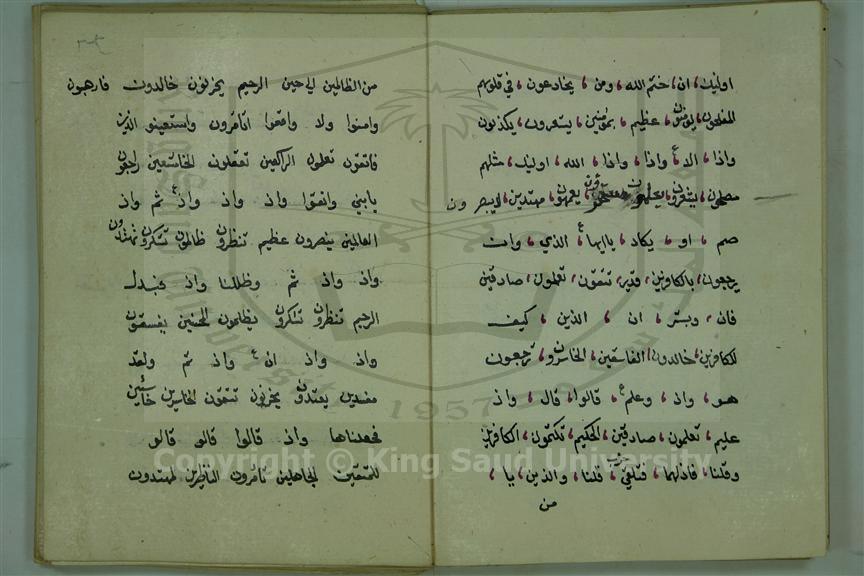 اوليك، ان، ختم الله، ومن، يخادعون، في قلوبهم
المفلحون، يوقنون، عظيم، بمؤمنين، يشعرون، يكذبون
واذا، الا، واذا، واذا، الله، اوليك، مثلهم
مصلحون، يشعرون، يعلمون، يعمهون، مهتدين، لايبصرون
صم، او، يكاد، ياايها، الذي، وان
يرجعون، بالكافرين، قدير، تتقون، تعلمون، صادقين
فان، وبشر، ان، الذين، كيف
للكافرين، خالدون، الفاسقين، الخاسرون، ترجعون
هو، واذ، وعلم، قالوا، قال، واذ
عليم، تعلمون، صادقين، الحكيم، تكتمون، الكافرين
وقلنا، فازلهما، فتلقى، قلنا، والذين، يا،
حزب
من
من الظالمين الى حين الرحيم يحزنون خالدون فارهبون
وامنوا ولا واقيموا اتامرون واستعينو الذين
فاتقون تعلمون الراكعين تعقلون الخاشعين راجعون
يابني واتقوا واذ واذ واذ ثم واذ
العالمين ينصرون عظيم تنظرون ظالمون تشكرون تهتدون
واذ واذ ثم وظللنا واذ فبدل
الرحيم تنظرون تشكرون يظلمون المحسنين يفسقون
واذ واذ ان واذ ثم ولقد
مفسدين يعتدون يحزنون تتقون الخاسرين خاسئين
فجعلناها واذ قالوا قالو قالو
للمتقين الجاهلين تامرون الناظرين لمهتدون
Copyright © King Saud University
1957